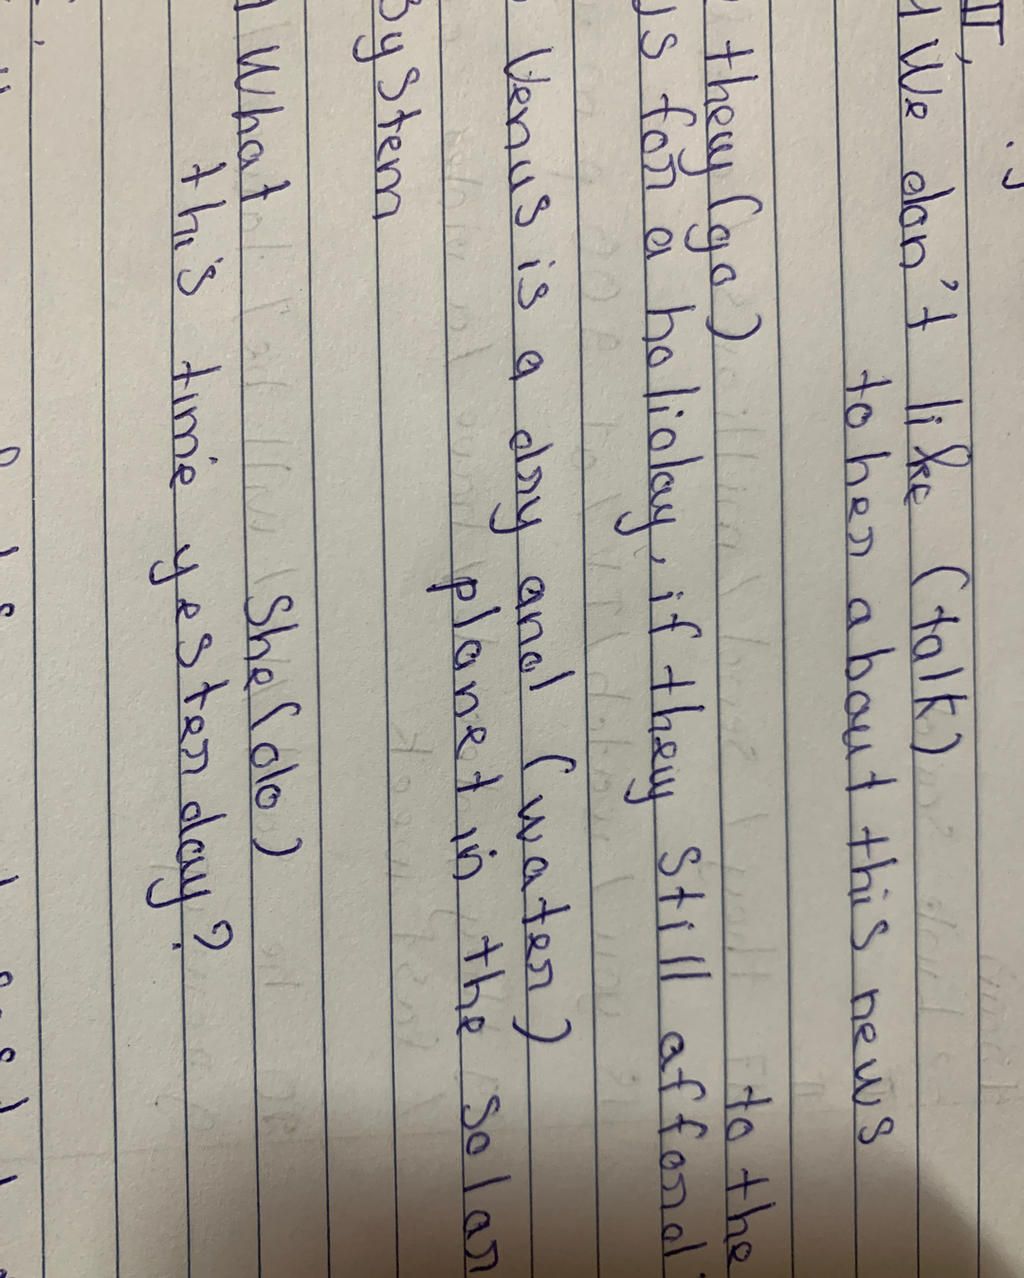 III,
We don't like (talk)
to her about this news
they (go) to the
US for a holiday, if they still afford
Venus is a dry and (water)
planet in the Solar
System
What she (do)
this time yesterday?